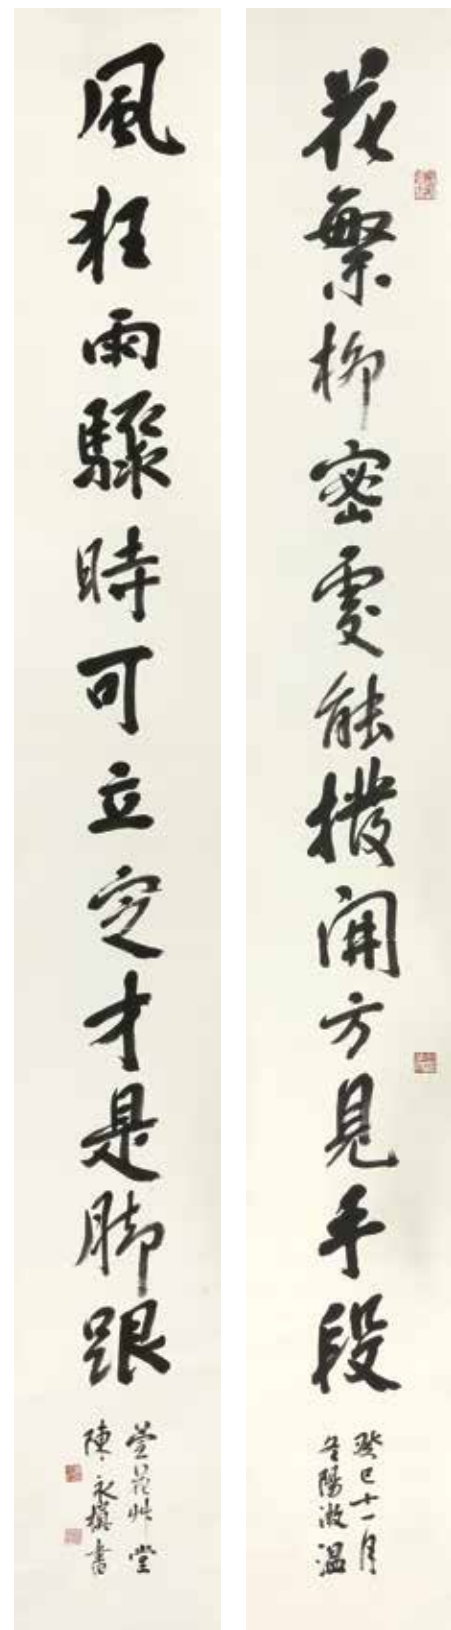 花繁柳密處能撥開方見手段
癸巳十一月
冬陽微溫
風狂雨驟時可立定才是脚跟
萱花艸堂
陳永模書